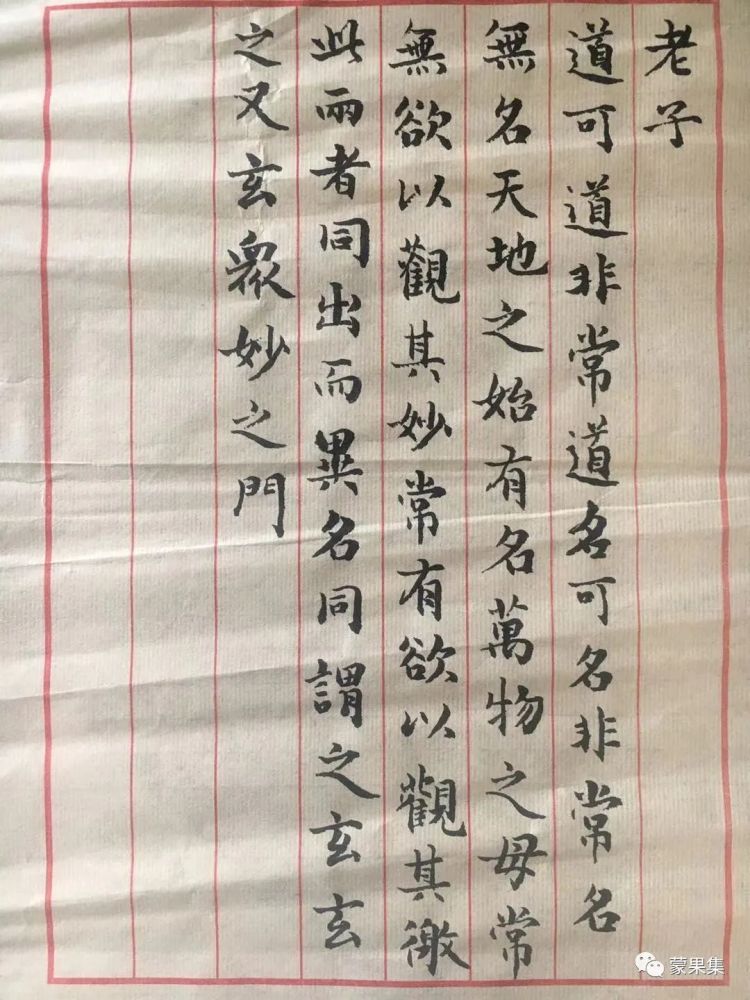 老子
道可道非常道名可名非常名
無名天地之始有名萬物之母常
無欲以觀其妙常有欲以觀其徼
此兩者同出而異名同謂之玄玄
之又玄眾妙之門
蒙果集